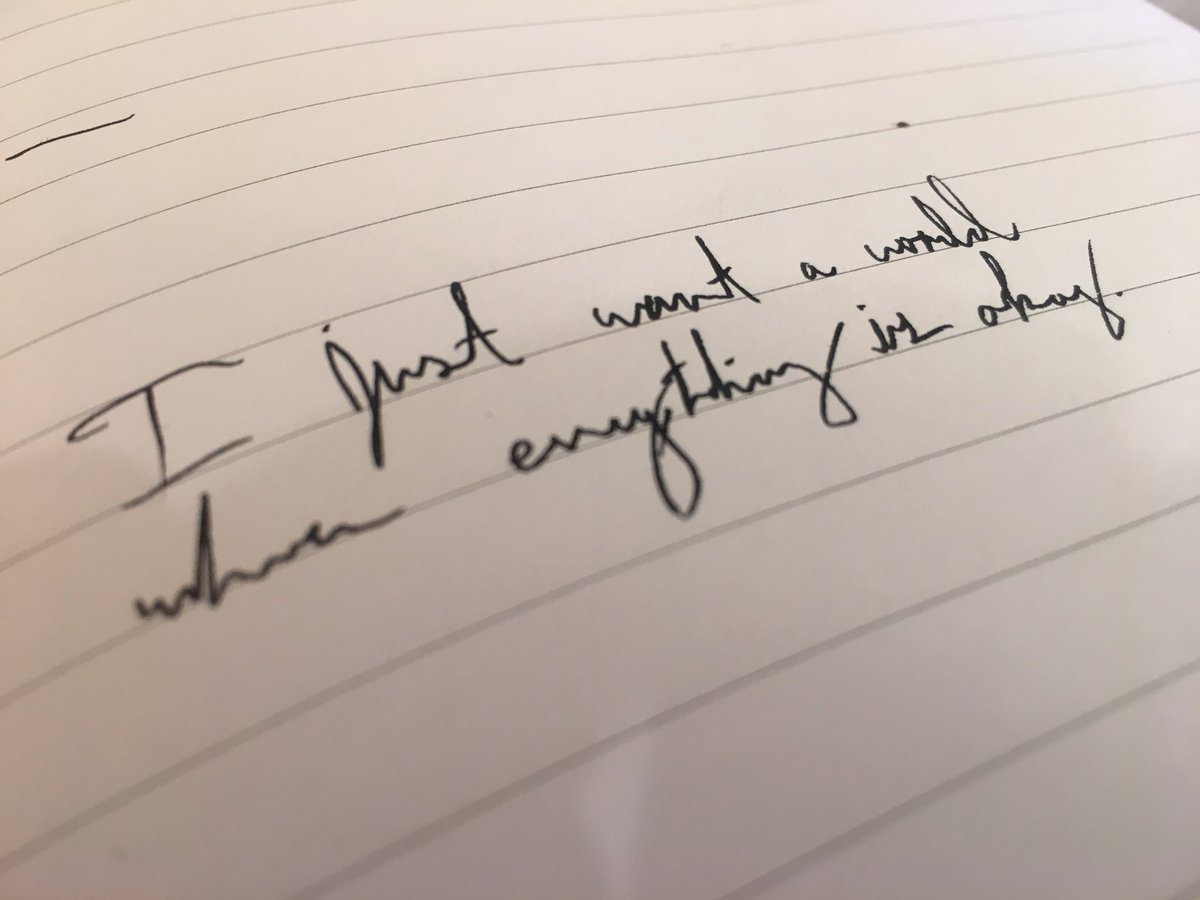 I just want a world
where everything is okay.